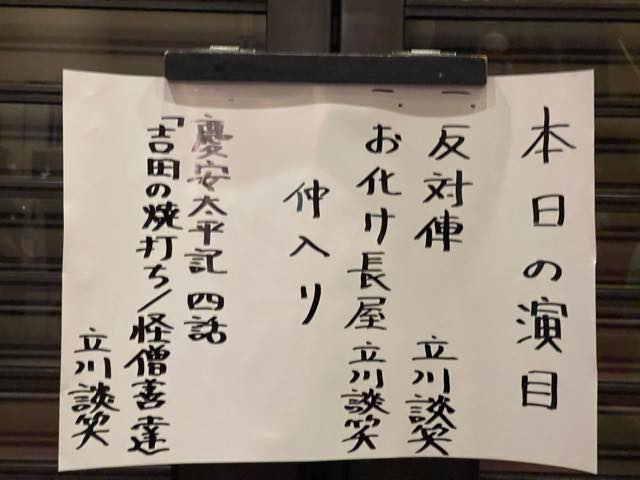 本日の演目
一、反対俥 立川談笑
一、お化け長屋 立川談笑
仲入り
慶安太平記 四話
「吉田の焼打ち/怪僧善達
立川談笑